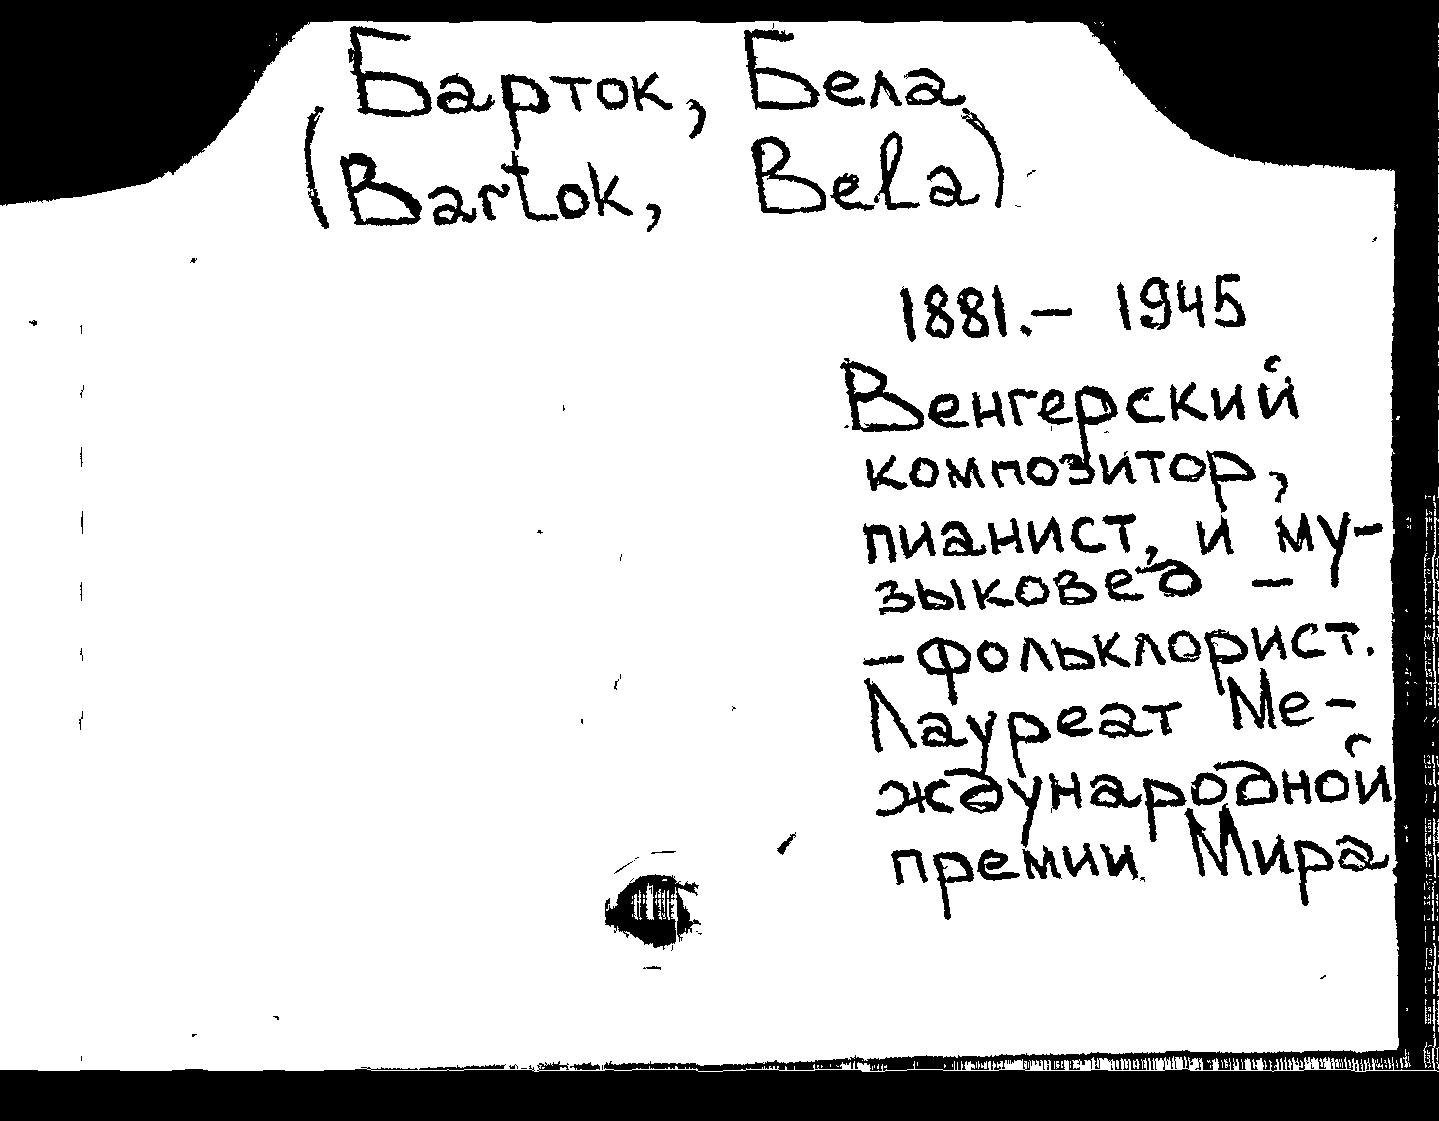 Барток, Бела
(Bartok, Bela)
1881.- 1945
Венгерский
композитор,
пианист, и му-
зыковед -
-фольклорист.
Лауреат Ме-
ждународной
премии Мира